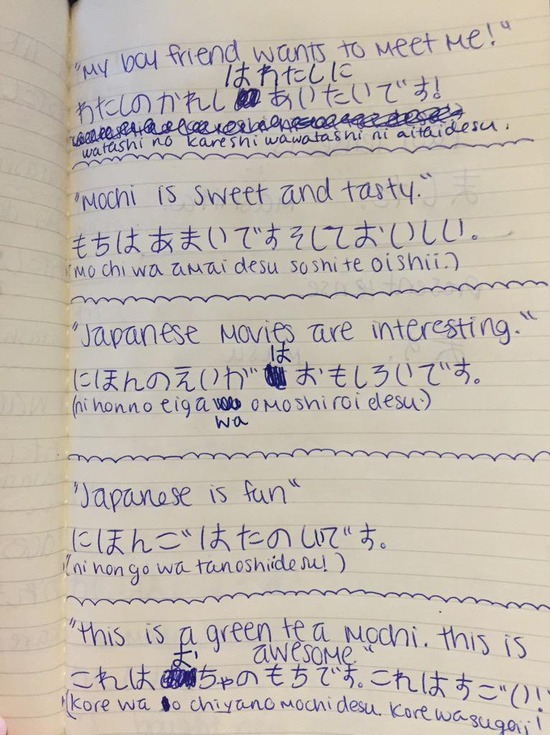 "My boy friend wants to meet me!"
はわたしに
わたしのかれし あいたいです!
watashi no kareshi wawatashi ni aitaidesu.
"Mochi is sweet and tasty."
もちは あまいですそしておいしい。
(mo chi wa amai desu soshite oishii.)
"Japanese movies are interesting."
は
にほんのえいが おもしろいです。
(ni honno eiga omoshiroi desu.)
wa
"Japanese is fun"
にほんごはたのしいです。
(ni hon go wa tanoshiidesu!)
"this is a green tea mochi. this is
awesome"
これは ちゃのもちです。これはすごい!
(kore wa o chiyano mochi desu. kore wasugoi!